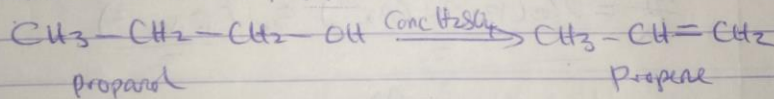 CH3-CH2-CH2-OH Conc H2SO4 → CH3-CH=CH2
propanol Propene